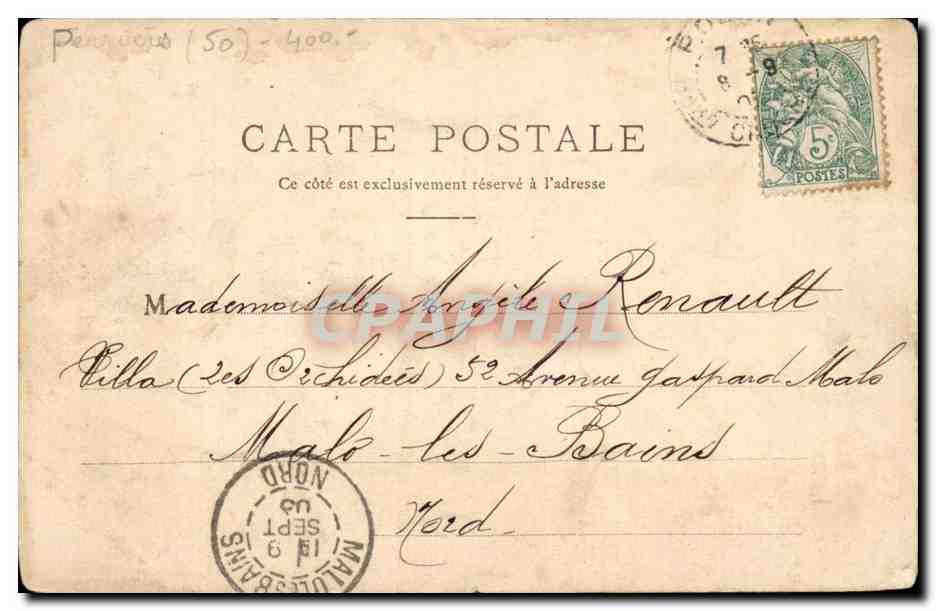 (50) - 400.-
7
8 - 9
5c
POSTES
CARTE POSTALE
Ce côté est exclusivement réservé à l'adresse
Mademoiselle Angèle Renault
CPAPHIL
Villa (Les Orchidées) 52 Avenue Gaspard Malo
Malo-les-Bains
Nord
MALO LES BAINS
9
SEPT
03
NORD